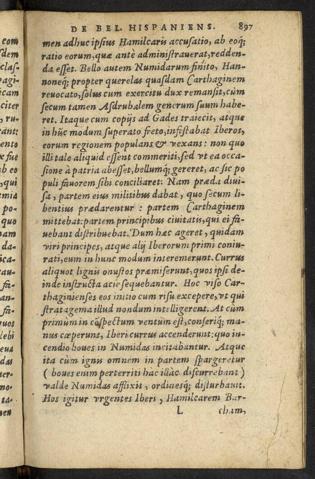 DE BEL. HISPANIENS. 897
men adhuc ipsius Hamilcaris accusatio, ab eoq;
ratio eorum, quæ antè administrauerat, redden-
da esset. Bello autem Numidarum finito, Han-
noneq; propter querelas quasdam Carthaginem
reuocato, solus cum exercitu dux remansit, cùm
secum tamen Asdrubalem generum suum habe-
ret. Itaque cum copijs ad Gades traiecit, atque
in hũc modum superato freto, infestabat Iberos,
eorum regionem populans & vexans: non quo
illi tale aliquid essent commeriti, sed vt ea occa-
sione à patria abesset, bellumq; gereret, ac sic po
puli fauorem sibi conciliaret: Nam præda diui-
sa, partem eius militibus dabat, quo secum li-
bentius prædarentur: partem Carthaginem
mittebat: partem principibus ciuitatis, qui ei fa-
uebant distribuebat. Dum hæc ageret, quidam
viri principes, atque alij Iberorum primi coniu-
rati, eum in hunc modum interemerunt. Currus
aliquot lignis onustos præmiserunt, quos ipsi de-
inde instructa acie sequebantur. Hoc viso Car-
thaginenses eos initio cum risu excepere, vt qui
stratagema illud nondum intelligerent. At cùm
primùm in cõspectum ventum est, conseriq; ma-
nus cœperunt, Iberi currus accenderunt: quo in-
cendio boues in Numidas incitabantur. Atque
ita cùm ignis omnem in partem spargeretur
(boues enim perterriti hàc illàc discurrebant)
valde Numidas afflixit, ordinesq; disturbauit.
Hos igitur vrgentes Iberi, Hamilcarem Bar-
L cham,